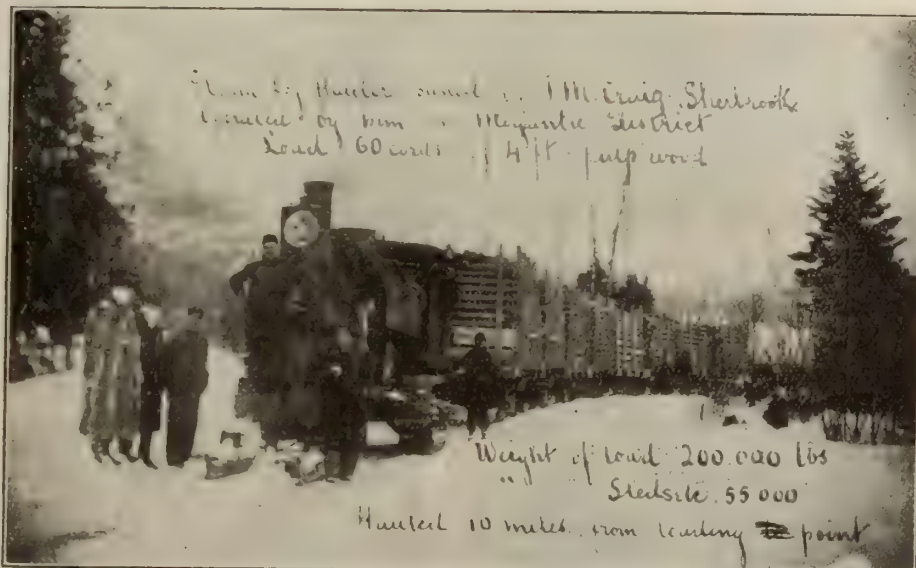 Hauler owned J M. Craig. Sherbrook
by him Megantic District
Load 60 cords 4 ft. pulp wood
Weight of load 200.000 lbs
" 55 000
Hauled 10 miles. from loading point